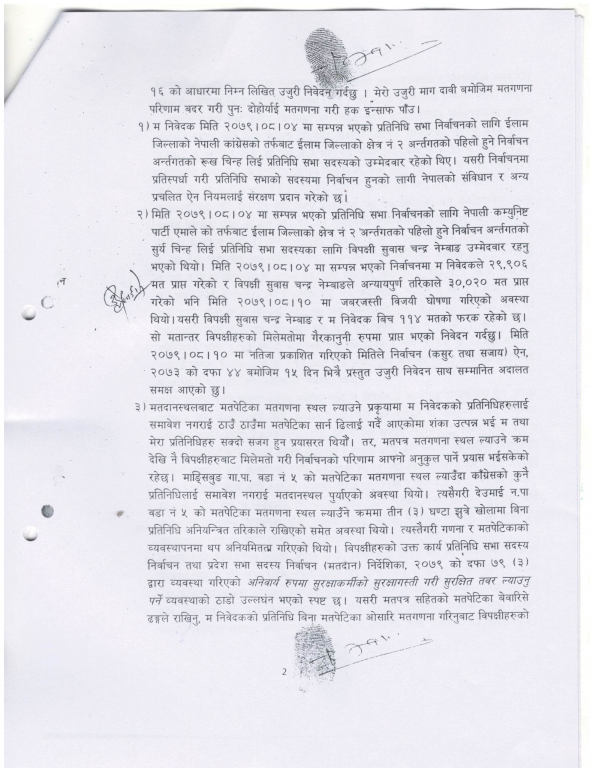 १६ को आधारमा निम्न लिखित उजुरी निवेदन गर्दछु । मेरो उजुरी माग दावी बमोजिम मतगणना
परिणाम बदर गरी पुनः दोहोर्याई मतगणना गरी हक इन्साफ पाँउ।
१) म निवेदक मिति २०७९।०८।०४ मा सम्पन्न भएको प्रतिनिधि सभा निर्वाचनको लागि ईलाम
जिल्लाको नेपाली कांग्रेसको तर्फबाट ईलाम जिल्लाको क्षेत्र नं २ अर्न्तगतको पहिलो हुने निर्वाचन
अर्न्तगतको रूख चिन्ह लिई प्रतिनिधि सभा सदस्यको उम्मेदवार रहेको थिए। यसरी निर्वाचनमा
प्रतिस्पर्धा गरी प्रतिनिधि सभाको सदस्यमा निर्वाचन हुनको लागी नेपालको संविधान र अन्य
प्रचलित ऐन नियमलाई संरक्षण प्रदान गरेको छ।
२) मिति २०७९।०८।०४ मा सम्पन्न भएको प्रतिनिधि सभा निर्वाचनको लागि नेपाली कम्युनिष्ट
पार्टी एमाले को तर्फबाट ईलाम जिल्लाको क्षेत्र नं २ अर्न्तगतको पहिलो हुने निर्वाचन अर्न्तगतको
सुर्य चिन्ह लिई प्रतिनिधि सभा सदस्यका लागि विपक्षी सुवास चन्द्र नेम्बाङ उम्मेदवार रहनु
भएको थियो। मिति २०७९।०८।०४ मा सम्पन्न भएको निर्वाचनमा म निवेदकले २९,९०६
मत प्राप्त गरेको र विपक्षी सुवास चन्द्र नेम्बाङले अन्यायपुर्ण तरिकाले ३०,०२० मत प्राप्त
गरेको भनि मिति २०७९।०८।१० मा जवरजस्ती विजयी घोषणा गरिएको अवस्था
थियो।यसरी विपक्षी सुवास चन्द्र नेम्बाङ र म निवेदक बिच ११४ मतको फरक रहेको छ।
सो मतान्तर विपक्षीहरुको मिलेमतोमा गैरकानुनी रुपमा प्राप्त भएको निवेदन गर्दछु। मिति
२०७९।०८।१० मा नतिजा प्रकाशित गरिएको मितिले निर्वाचन (कसुर तथा सजाय) ऐन,
२०७३ को दफा ४४ बमोजिम १५ दिन भित्रै प्रस्तुत उजुरी निवेदन साथ सम्मानित अदालत
समक्ष आएको छु।
३) मतदानस्थलबाट मतपेटिका मतगणना स्थल ल्याउने प्रकृयामा म निवेदकको प्रतिनिधिहरुलाई
समावेश नगराई ठाउँ ठाउँमा मतपेटिका सार्न ढिलाई गर्दै आएकोमा शंका उत्पन्न भई म तथा
मेरा प्रतिनिधिहरु सक्दो सजग हुन प्रयासरत थियौं। तर, मतपत्र मतगणना स्थल ल्याउने क्रम
देखि नै विपक्षीहरुबाट मिलेमतो गरी निर्वाचनको परिणाम आफ्नो अनुकुल पार्ने प्रयास भईसकेको
रहेछ। माङ्सिबुङ गा.पा. वडा नं ५ को मतपेटिका मतगणना स्थल ल्याउँदा काँग्रेसको कुनै
प्रतिनिधिलाई समावेश नगराई मतदानस्थल पुर्याएको अवस्था थियो। त्यसैगरी देउमाई न.पा
वडा नं ५ को मतपेटिका मतगणना स्थल ल्याउँने क्रममा तीन (३) घण्टा झुत्रे खोलामा बिना
प्रतिनिधि अनियन्त्रित तरिकाले राखिएको समेत अवस्था थियो। त्यस्तैगरी गणना र मतपेटिकाको
व्यवस्थापनमा थप अनियमितता गरिएको थियो। विपक्षीहरुको उक्त कार्य प्रतिनिधि सभा सदस्य
निर्वाचन तथा प्रदेश सभा सदस्य निर्वाचन (मतदान) निर्देशिका, २०७९ को दफा ७९ (३)
द्वारा व्यवस्था गरिएको अनिवार्य रुपमा सुरक्षाकर्मीको सुरक्षागस्ती गरी सुरक्षित तवर ल्याउनु
पर्ने व्यवस्थाको ठाडो उल्लघंन भएको स्पष्ट छ। यसरी मतपत्र सहितको मतपेटिका बेवारिसे
ढङ्गले राखिनु, म निवेदकको प्रतिनिधि बिना मतपेटिका ओसारि मतगणना गरिनुबाट विपक्षीहरुको
2